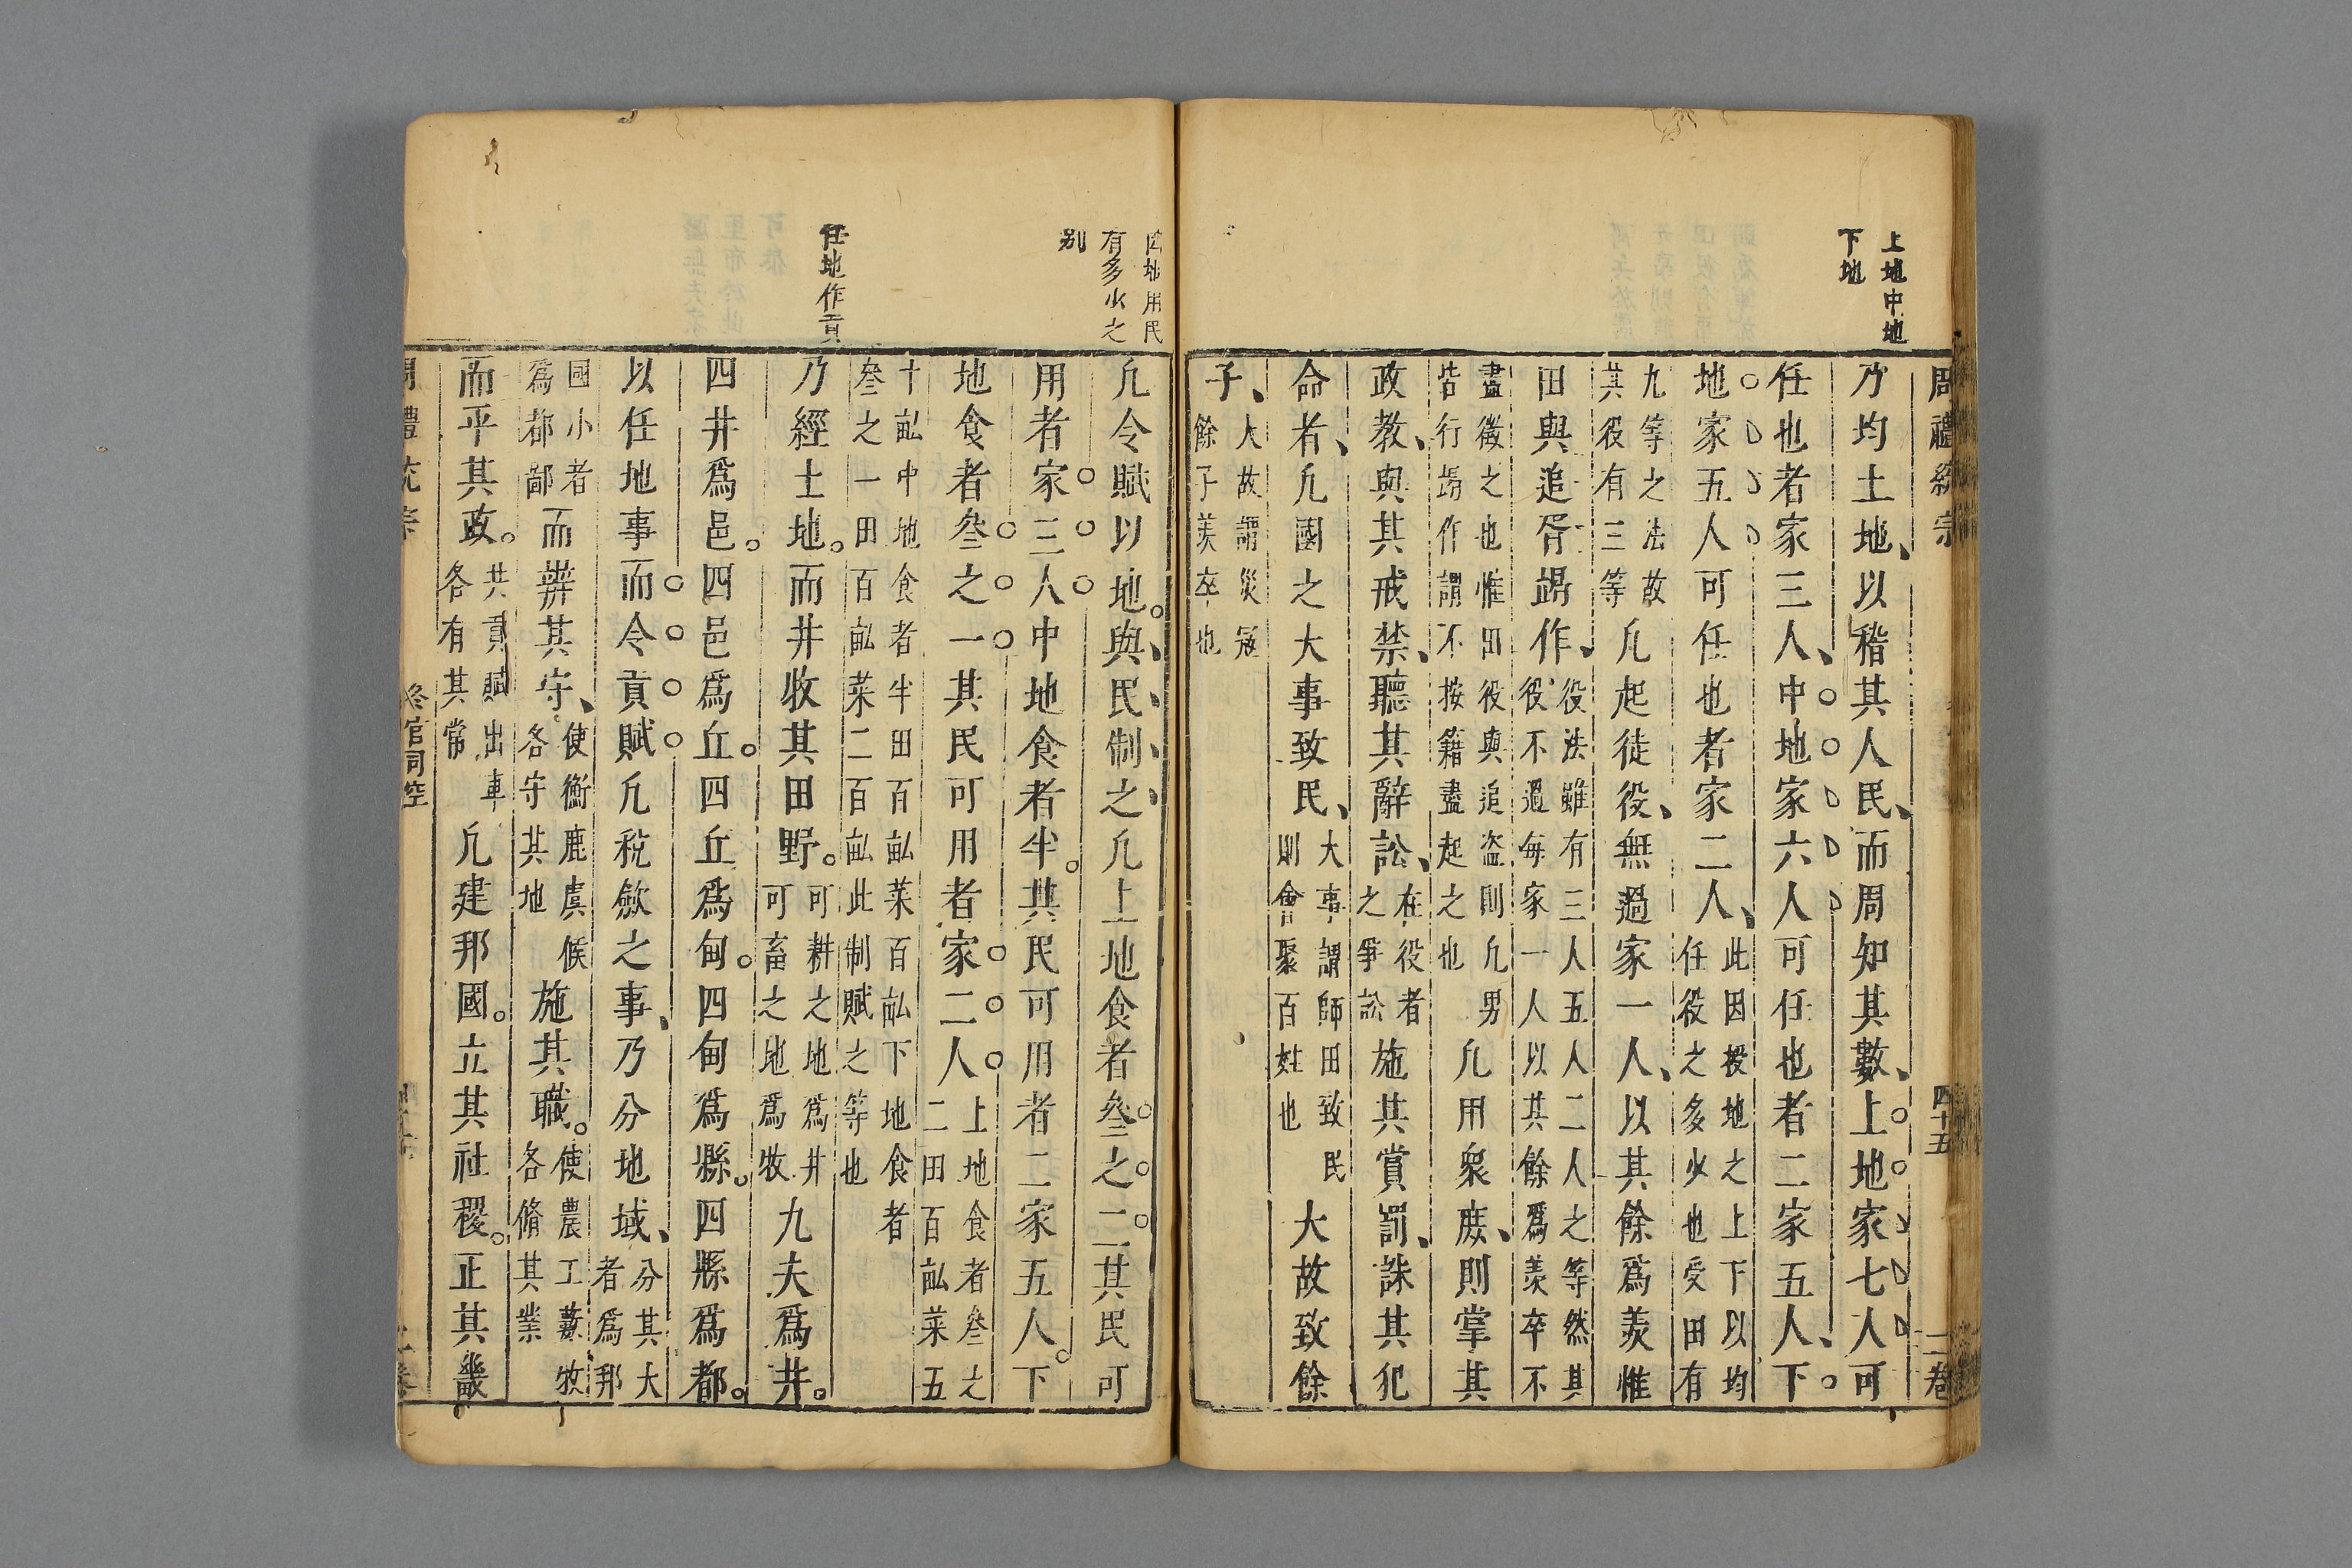 周禮統宗 四十五 二卷
上地中地
下地
乃均土地、以稽其人民、而周知其數、上地家七人可
任也者家三人、中地家六人可任也者二家五人、下
地家五人可任也者家二人、此因授地之上下以均
任役之多少也受田有
九等之法故
其役有三等
凡起徒役、無過家一人、以其餘爲羨惟
田與追胥竭作、役法雖有三人五人二人之等然其
役不過每家一人以其餘爲羨卒不
盡徵之也惟田役與追盗則凡男
皆行竭作謂不按籍盡起之也
凡用衆庶、則掌其
政教、與其戒禁、聽其辭訟、在役者
之爭訟
施其賞罰、誅其犯
命者、凡國之大事致民、大事謂師田致民
則會聚百姓也
大故致餘
子、大故謂災冦
餘子羨卒也
因地用民
有多少之
别
任地作貢
凡令賦以地。與民制之凡上地食者叁之二其民可
用者家三人中地食者半。其民可用者二家五人。下
地食者叁之一其民可用者家二人上地食者叁之
二田百畆菜五
十畆中地食者半田百畆菜百畆下地食者
叁之一田百畆菜二百畆此制賦之等也
乃經土地。而井牧其田野。可耕之地爲井
可畜之地爲牧
九夫爲井。
四井爲邑。四邑爲丘。四丘爲甸。四甸爲縣。四縣爲都。
以任地事而令貢賦凡稅斂之事、乃分地域、分其大
者爲邦
國小者
爲都鄙
而辨其守、使衡鹿虞候
各守其地
施其職。使農工藪牧
各脩其業
而平其政。共貢賦出車
各有其常
凡建邦國。立其社稷。正其畿
周禮統宗 冬官司空